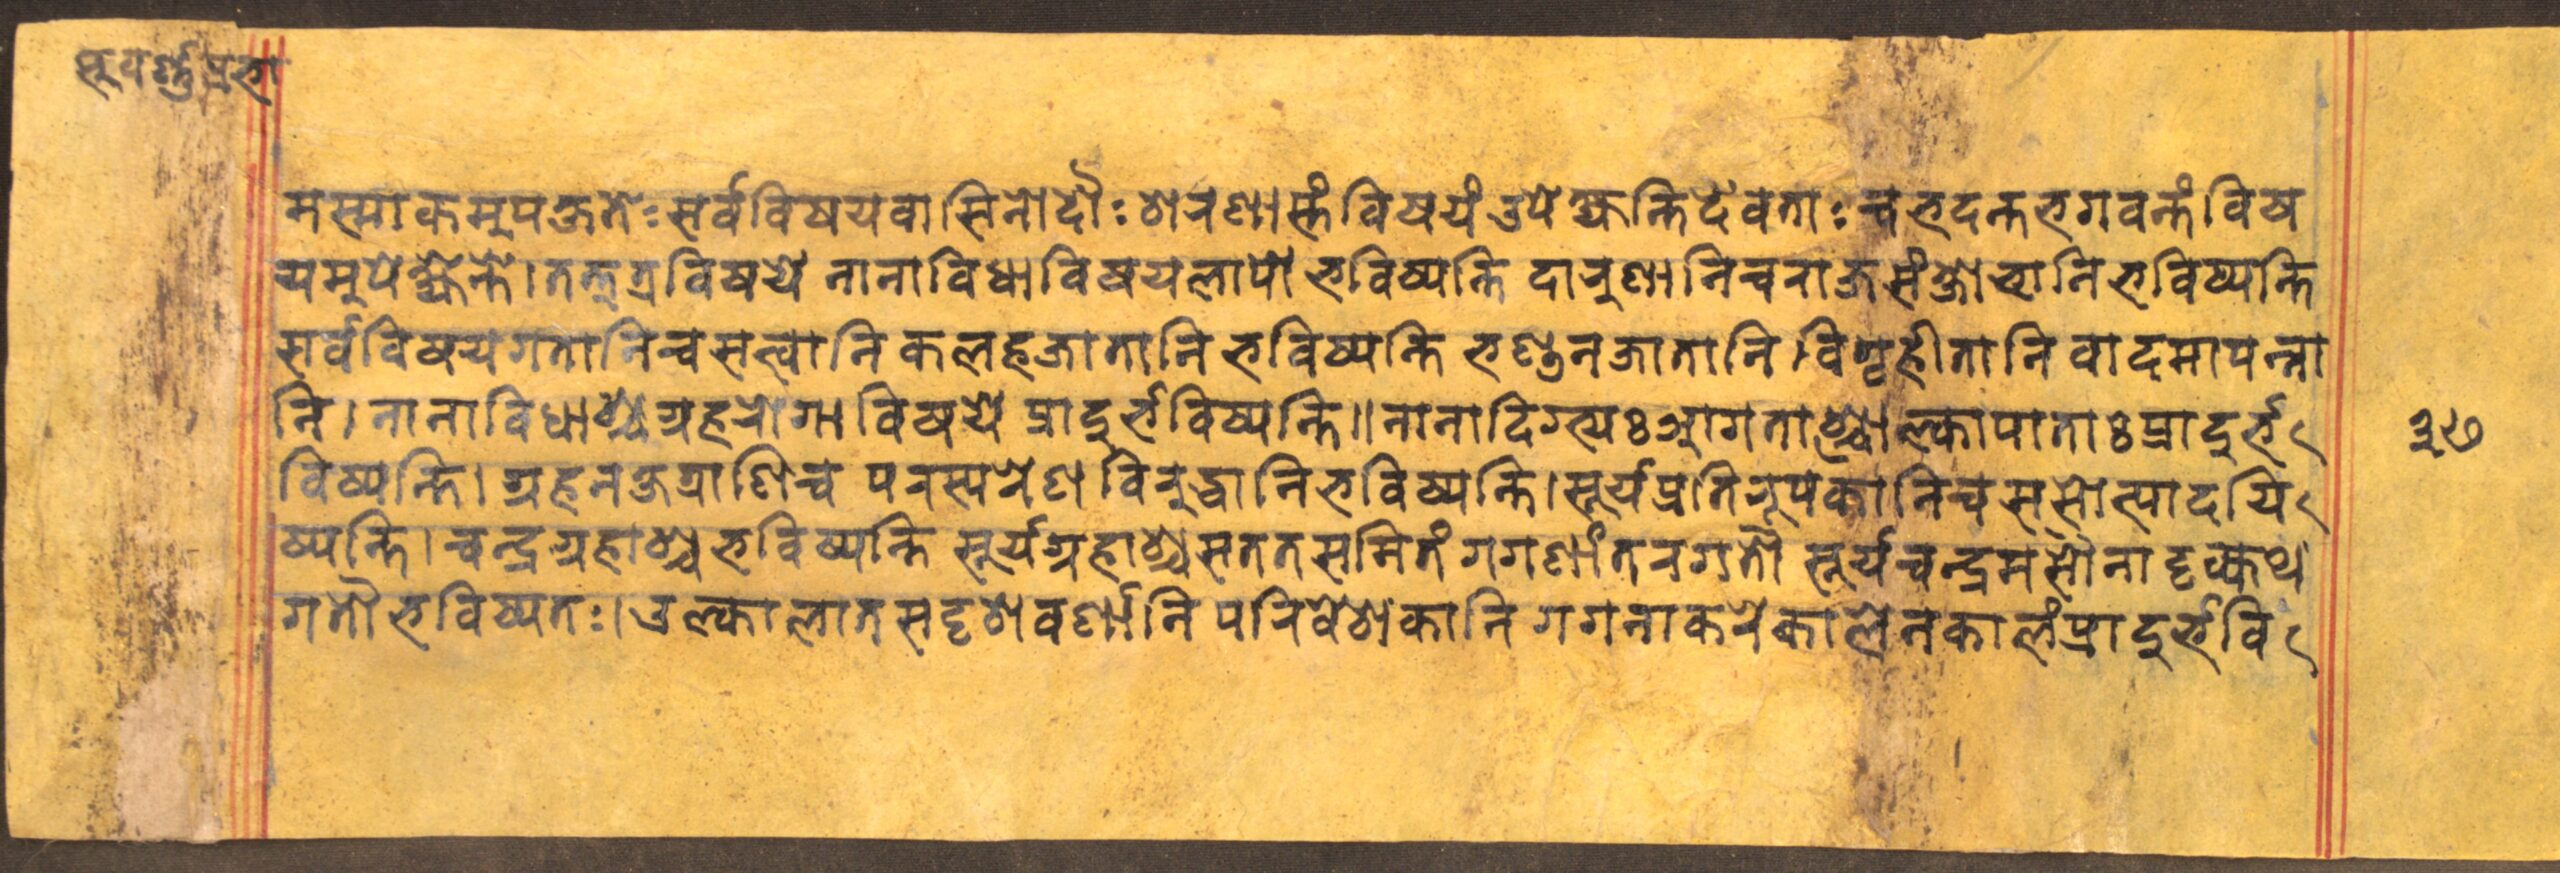 सुवर्ण्णप्रभा
मस्माकमुपक्षतेः सर्वविषयवासिनोदौः शरणास्तं विषयं उपेक्ष्यन्ति देवताः च भदन्त भगवन्तं विष
यमुपेक्ष्यन्ते। तत्र विषये नानाविधा विषयलापो भविष्यन्ति दारुणानि च राजसंक्षोभानि भविष्यन्ति
सर्वविषयगतानि च सत्वानि कलहजातानि भविष्यन्ति भण्डनजातानि। विगृहीतानि वादमापन्ना
नि। नानाविधाश्च ग्रहरोगा विषये प्रादुर्भविष्यन्ति॥ नानादिग्भ्यः आगताश्चोल्कापाताः प्रादुर्भ
विष्यन्ति। ग्रहनक्षत्राणि च परस्परेण विरुद्धानि भविष्यन्ति। सूर्यप्रतिरूपकानि च ससोत्पादयि
ष्यन्ति। चन्द्रग्रहाश्च भविष्यन्ति सूर्यग्रहाश्च सततसमितं गगणांतरगतौ सूर्यचन्द्रमसौ ना
गतौ भविष्यतः। उल्कालातसदृशवर्णानि परिवेशकानि गगनाकरे कालेन कालं प्रादुर्भवि
३७